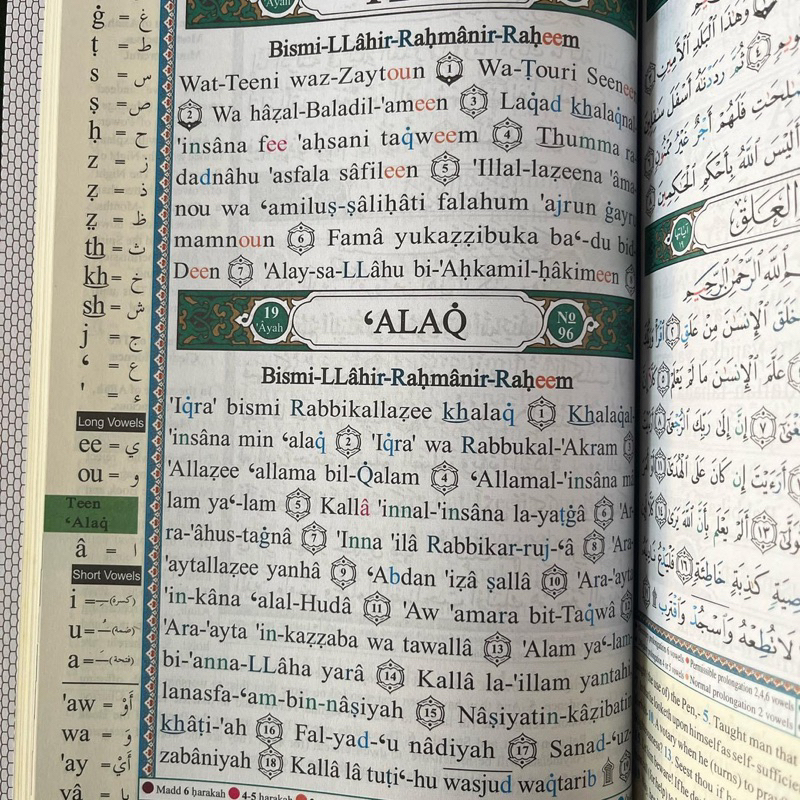 ġ = غ
ṭ = ط
s = س
ṣ = ص
ḥ = ح
z = ز
ẓ = ذ
ẓ = ظ
th = ث
kh = خ
sh = ش
j = ج
‘ = ع
' = ء
Long Vowels
ee = ي
ou = و
Teen
‘Alaq̇
â = ا
Short Vowels
i = (كسرة)
u = (ضمة)
a = (فتحة)
'aw = أَوْ
wa = وَ
'ay = أَيْ
yâ = يا
Bismi-LLâhir-Raḥmânir-Raḥeem
Wat-Teeni waz-Zaytoun 1 Wa-Ṭouri Seenee
2 Wa hâẓal-Baladil-'ameen 3 Laq̇ad khalaq̇nal
'insâna fee 'aḥsani taq̇weem 4 Thumma ra
dadnâhu 'asfala sâfileen 5 'Illal-laẓeena 'âma
nou wa ‘amiluṣ-ṣâliḥâti falahum 'ajrun ġayru
mamnoun 6 Famâ yukaẓẓibuka ba‘-du bid
Deen 7 'Alay-sa-LLâhu bi-'Aḥkamil-ḥâkimeen 8
19 'Âyah
‘ALAQ̇
No 96
Bismi-LLâhir-Raḥmânir-Raḥeem
'Iq̇ra' bismi Rabbikallaẓee khalaq̇ 1 Khalaq̇al-
'insâna min ‘alaq̇ 2 'Iq̇ra' wa Rabbukal-'Akram 3
'Allaẓee ‘allama bil-Q̇alam 4 ‘Allamal-'insâna mâ
lam ya‘-lam 5 Kallâ 'innal-'insâna la-yaṭġâ 6 'Ar-
ra-'âhus-taġnâ 7 'Inna 'ilâ Rabbikar-ruj-‘â 8 'Ara-
'aytallaẓee yanhâ 9 ‘Abdan 'iẓâ ṣallâ 10 'Ara-'ayta
'in-kâna ‘alal-Hudâ 11 'Aw 'amara bit-Taq̇wâ 12
'Ara-'ayta 'in-kaẓẓaba wa tawallâ 13 'Alam ya‘-lam-
bi-'anna-LLâha yarâ 14 Kallâ la-'illam yantahi
lanasfa-‘am-bin-nâṣiyah 15 Nâṣiyatin-kâẓibatin
khâṭi-'ah 16 Fal-yad-‘u nâdiyah 17 Sanad-‘uz-
zabâniyah 18 Kallâ lâ tuṭi‘-hu wasjud waq̇tarib
Madd 6 ḥarakah 4-5 ḥarakah
وَهَٰذَا الْبَلَدِ الْأَمِينِ
ثُمَّ رَدَدْنَاهُ أَسْفَلَ سَافِلِينَ
فَلَهُمْ أَجْرٌ غَيْرُ مَمْنُونٍ
أَلَيْسَ اللَّهُ بِأَحْكَمِ الْحَاكِمِينَ
العلق
خَلَقَ الْإِنسَانَ مِنْ عَلَقٍ
عَلَّمَ الْإِنسَانَ مَا لَمْ يَعْلَمْ
إِنَّ إِلَىٰ رَبِّكَ الرُّجْعَىٰ
أَرَأَيْتَ إِن كَانَ عَلَى الْهُدَىٰ
أَلَمْ يَعْلَم بِأَنَّ اللَّهَ يَرَىٰ
كَاذِبَةٍ خَاطِئَةٍ
لَا تُطِعْهُ وَاسْجُدْ وَاقْتَرِب
Permissible prolongation 2,4,6 vowels
Normal prolongation 2 vowels
the use of) the Pen,- 5. Taught man that
looketh upon himself as self-suffici